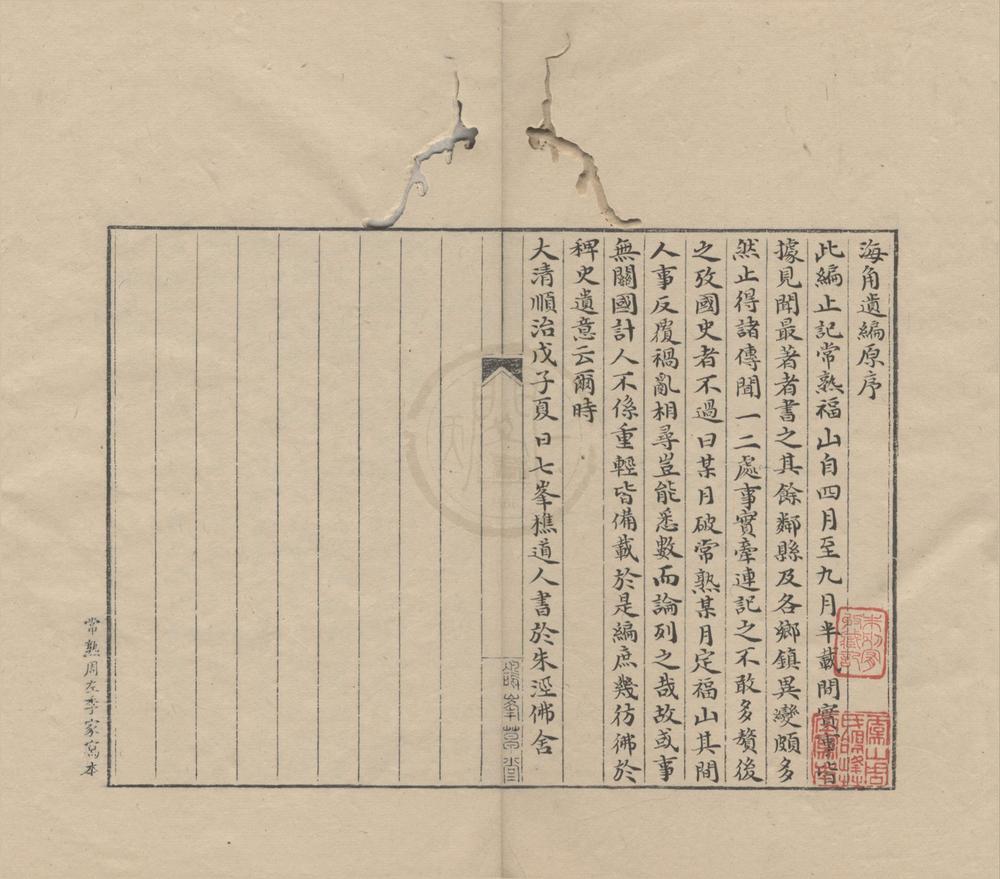 海角遺編原序
此編止記常熟福山自四月至九月半載間實事皆
據見聞最著者書之其餘鄰縣及各鄉鎮異變頗多
然止得諸傳聞一二處事實牽連記之不敢多贅後
之攷國史者不過曰某月破常熟某月定福山其間
人事反覆禍亂相尋豈能悉數而論列之哉故或事
無關國計人不係重輕皆備載於是編庶幾彷彿於
稗史遺意云爾時
大清順治戊子夏日七峯樵道人書於朱涇佛舍
鴿峯草堂
常熟周左季家寫本